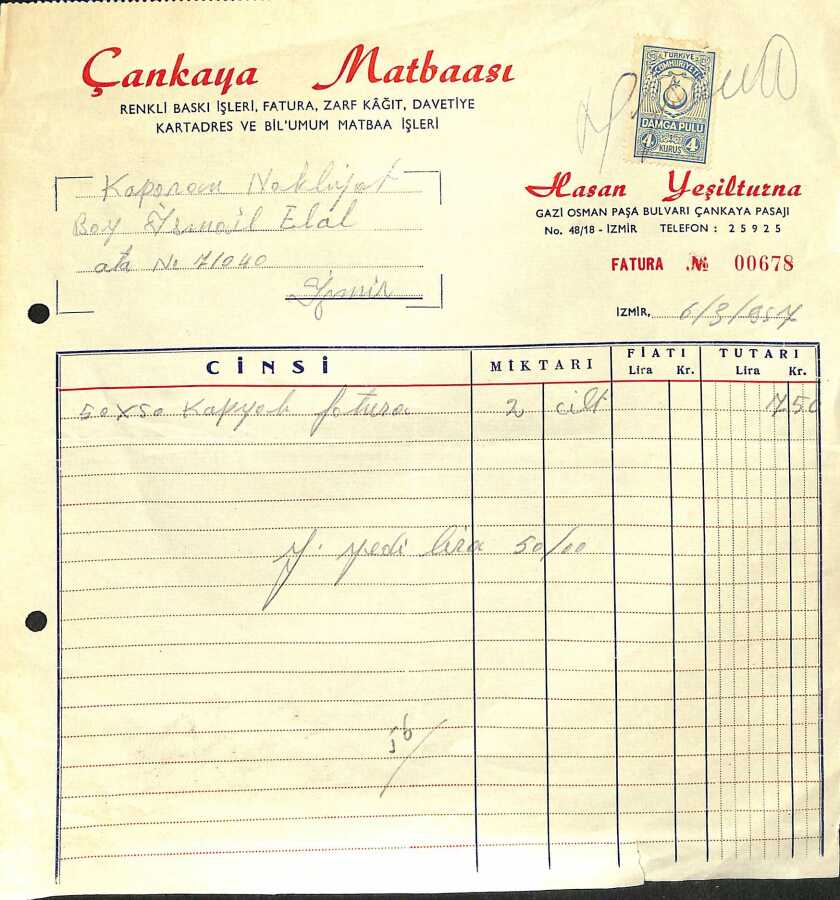 Çankaya Matbaası
RENKLİ BASKI İŞLERİ, FATURA, ZARF KÂĞIT, DAVETİYE
KARTADRES VE BİL'UMUM MATBAA İŞLERİ
TÜRKİYE
CUMHURİYETİ
DAMGA PULU
4 KURUŞ 4
Hasan Yeşilturna
GAZİ OSMAN PAŞA BULVARI ÇANKAYA PASAJI
No. 48/18 - İZMİR TELEFON : 25925
FATURA № 00678
Nakliyat
Bay İsmail Elal
No 71040
İzmir
İZMİR, 6/3/957
CİNSİ MİKTARI FİATI TUTARI
Lira Kr. Lira Kr.
50x50 fatura 2 cilt 750
Y. yedi lira 50/00